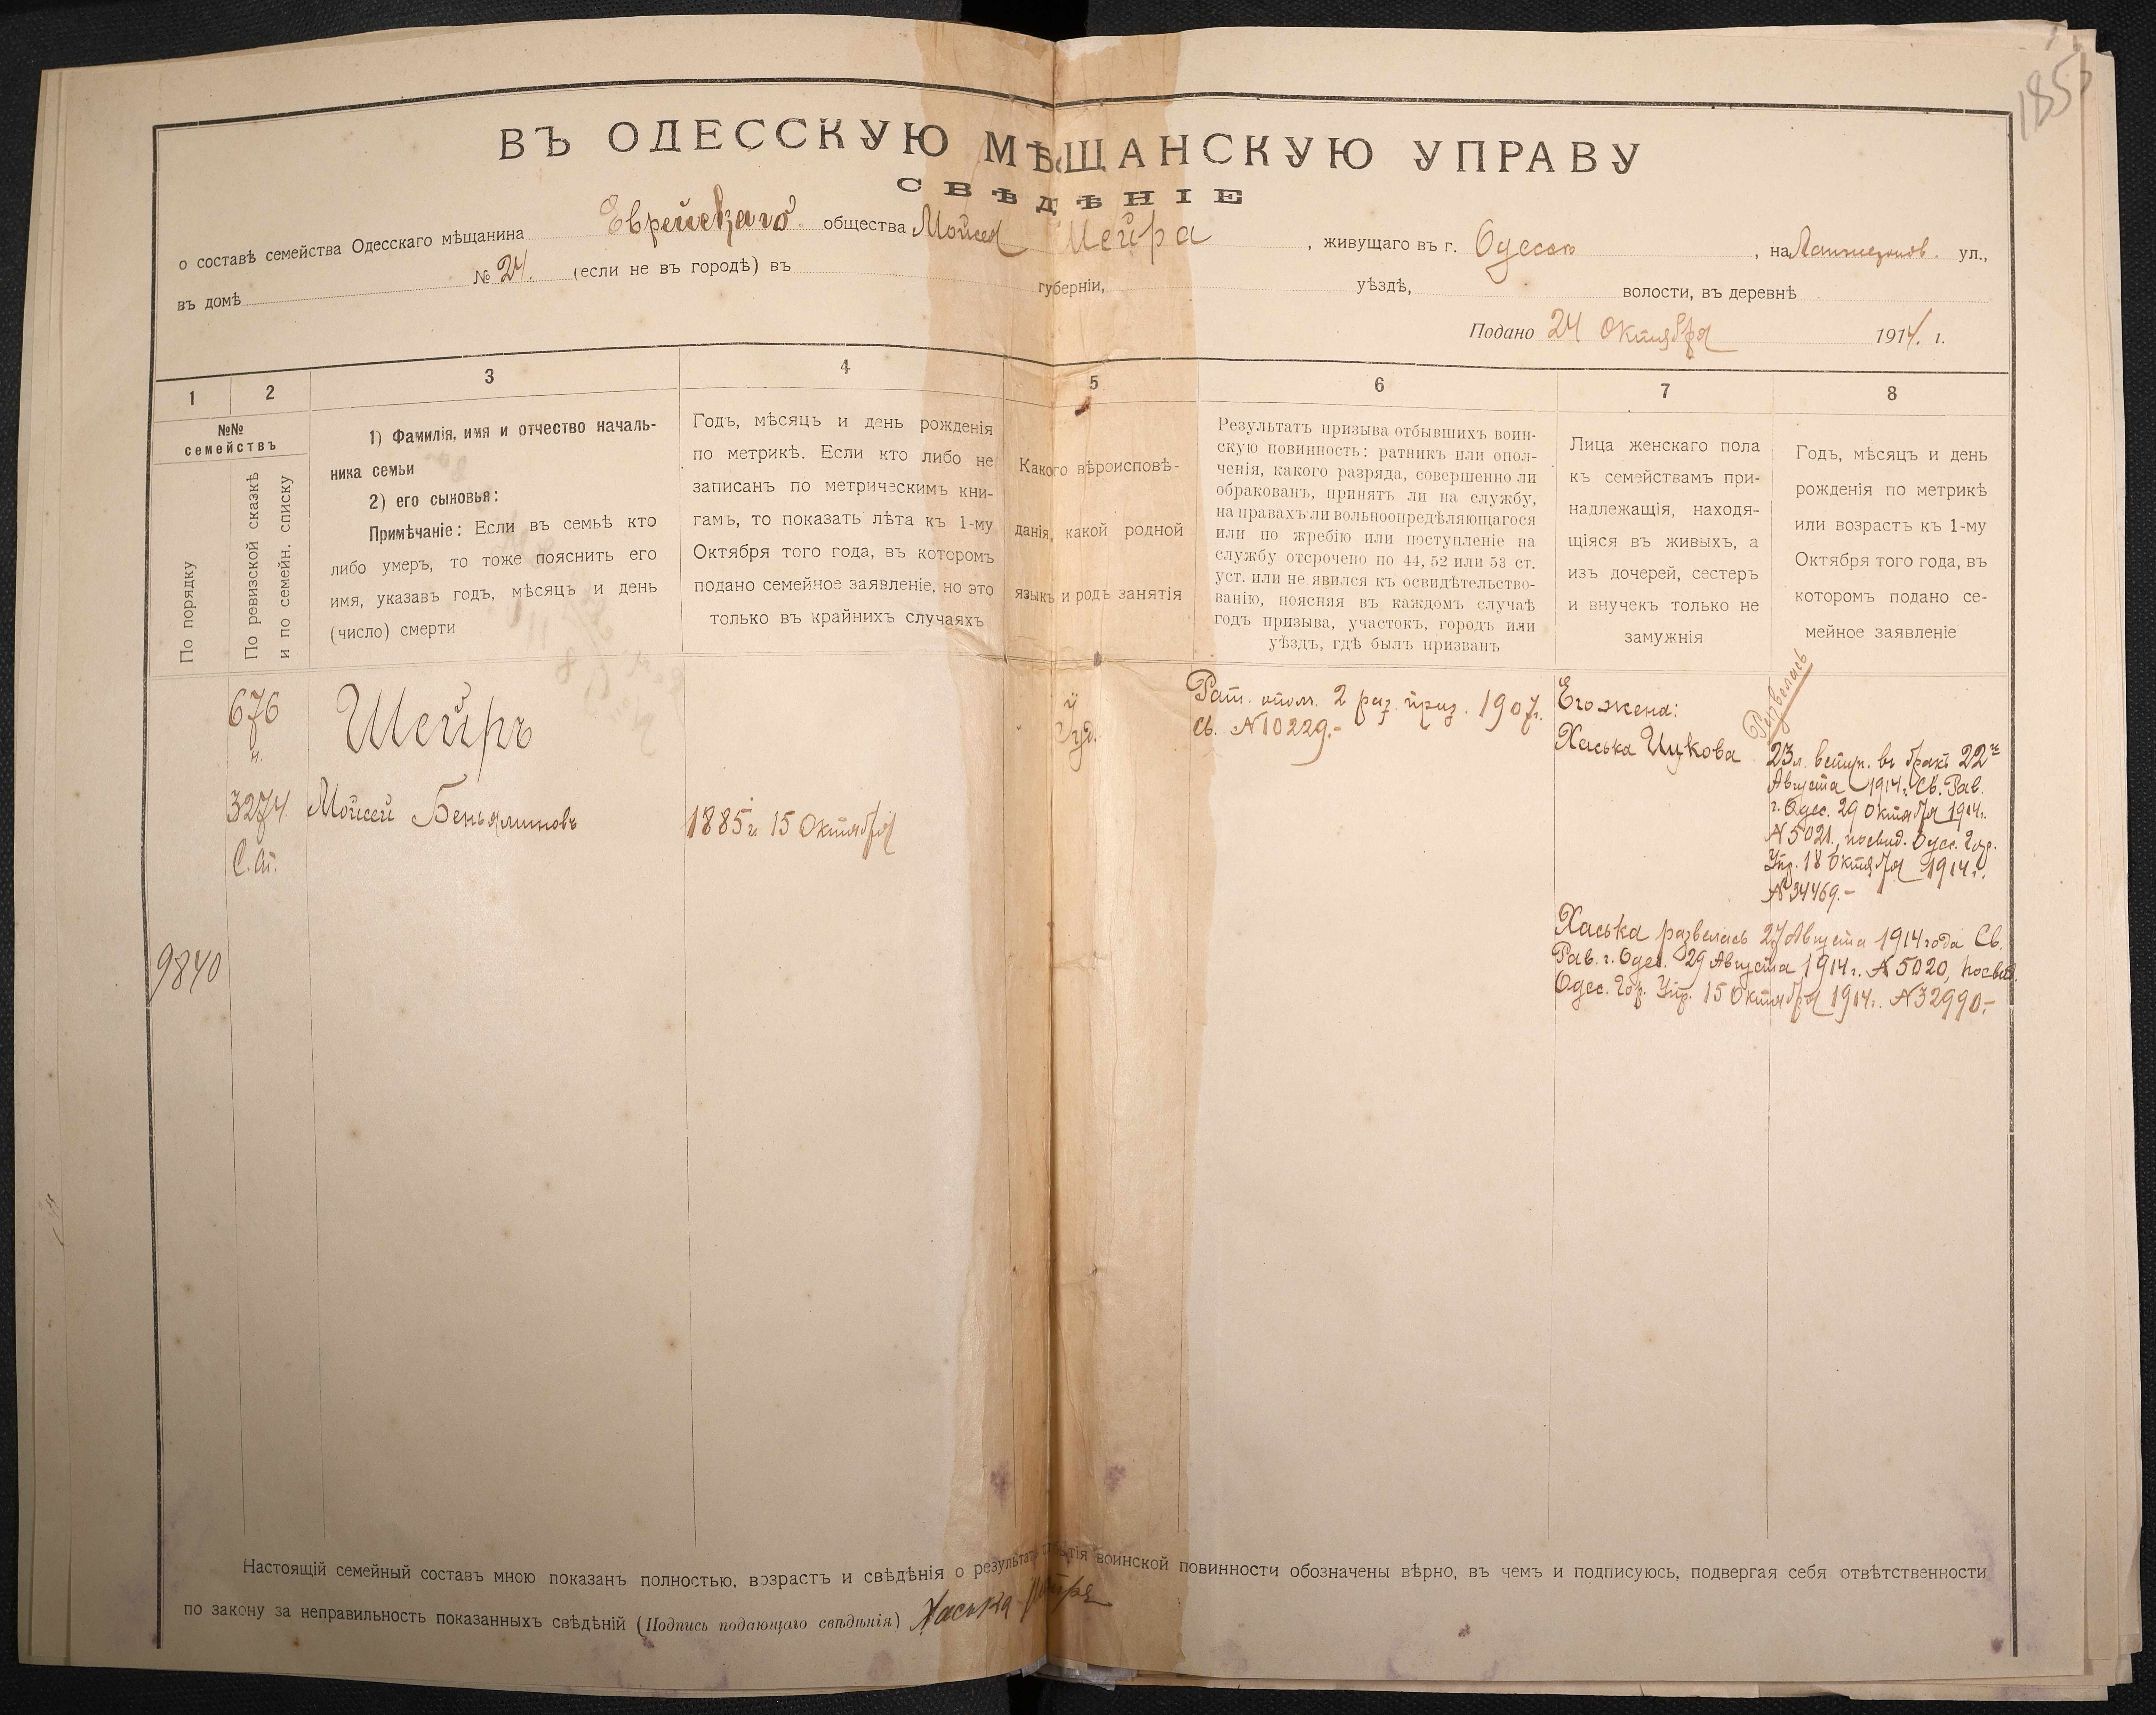 185
ВЪ ОДЕССКУЮ МѢЩАНСКУЮ УПРАВУ
СВѢДѢНІЕ
о составѣ семейства Одесскаго мѣщанина Еврейскаго общества Мойсея Шейра, живущаго въ г. Одессѣ, на Ланжеронов. ул.,
въ домѣ № 24. (если не въ городѣ) въ губерніи, уѣздѣ, волости, въ деревнѣ
Подано 24 Октября 1914. г.
1
2
3
4
5
6
7
8
№№
семействъ
По порядку
По ревизской сказкѣ
и по семейн. списку
1) Фамилія, имя и отчество началь-
ника семьи
2) его сыновья:
Примѣчаніе: Если въ семьѣ кто
либо умеръ, то тоже пояснить его
имя, указавъ годъ, мѣсяцъ и день
(число) смерти
Годъ, мѣсяцъ и день рожденія
по метрикѣ. Если кто либо не
записанъ по метрическимъ кни-
гамъ, то показать лѣта къ 1-му
Октября того года, въ которомъ
подано семейное заявленіе, но это
только въ крайнихъ случаяхъ
Какого вѣроисповѣ-
данія, какой родной
языкъ и родъ занятія
Результатъ призыва отбывшихъ воин-
скую повинность: ратникъ или опол-
ченія, какого разряда, совершенно ли
обракованъ, принятъ ли на службу,
на правахъ ли вольноопредѣляющагося
или по жребію или поступленіе на
службу отсрочено по 44, 52 или 53 ст.
уст. или не явился къ освидѣтельство-
ванію, поясняя въ каждомъ случаѣ
годъ призыва, участокъ, городъ или
уѣздъ, гдѣ былъ призванъ
Лица женскаго пола
къ семействамъ при-
надлежащія, находя-
щіяся въ живыхъ, а
изъ дочерей, сестеръ
и внучекъ только не
замужнія
Годъ, мѣсяцъ и день
рожденія по метрикѣ
или возрастъ къ 1-му
Октября того года, въ
которомъ подано се-
мейное заявленіе
676
н.
3274.
С. Ат.
9840
Шейръ
Мойсей Беньяминовъ
1885 г. 15 Октября
Іуд.
Рат. опол. 2 раз. приз. 1907 г.
Св. № 10229.-
Его жена:
Хаська Ицкова
Развелась
23 л. вступ. въ бракъ 22го
Августа 1914 г. Св. Рав.
г. Одес. 29 Октября 1914 г.
№ 5021, посвид. Одес. Гор.
Упр. 18 Октября 1914 г.
№ 34469.-
Хаська развелась 27 Августа 1914 года Св.
Рав. г. Одес. 29 Августа 1914 г. № 5020, посвид.
Одес. Гор. Упр. 15 Октября 1914 г. № 32990.-
Настоящій семейный составъ мною показанъ полностью, возрастъ и свѣдѣнія о результатѣ отбытія воинской повинности обозначены вѣрно, въ чемъ и подписуюсь, подвергая себя отвѣтственности
по закону за неправильность показанныхъ свѣдѣній (Подпись подающаго свѣдѣнія) Хаська Шейръ